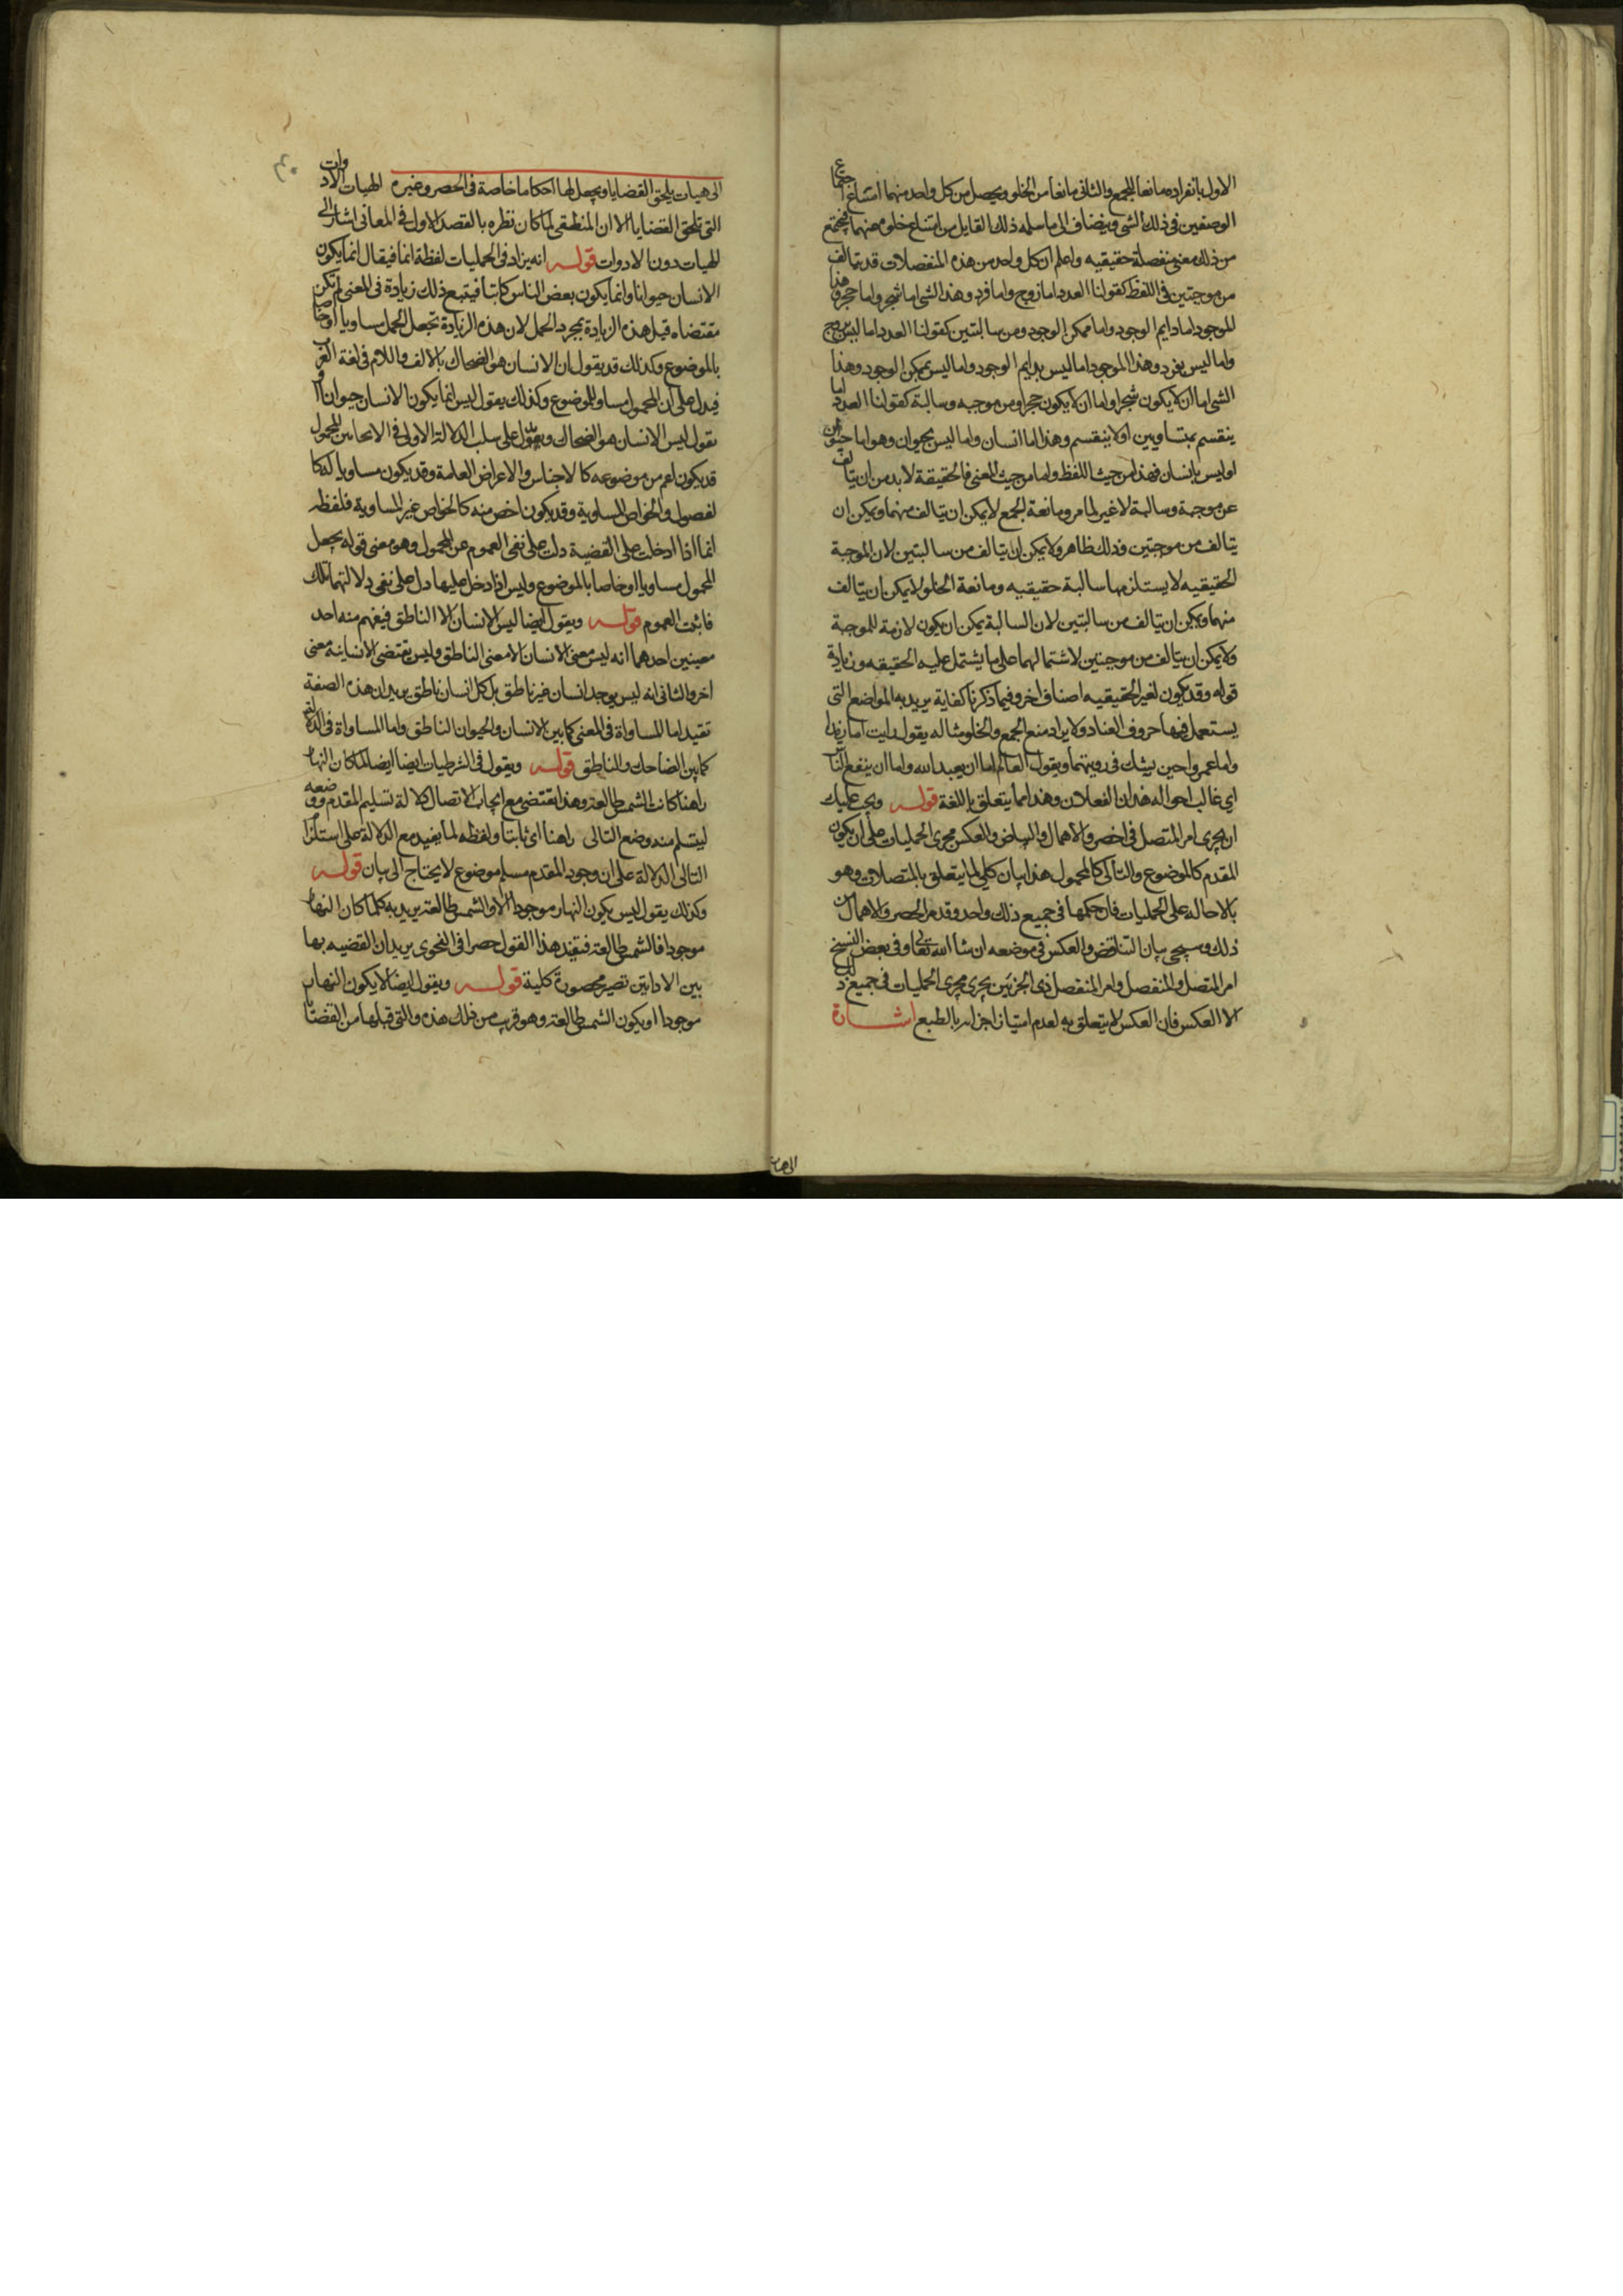 الاول بانفراده مانعا للجمع والثانى مانعا من الخلو ويحصل من كل واحد منهما امتناع اجتماع
الوصفين فى ذلك الشى ويضاف الى ما سلمه ذلك القايل من امتناع خلوه عنهما فيجتمع
من ذلك معنى منفصلة حقيقيه واعلم ان كل واحد من هذه المنفصلات قد يتالف
من موجبتين فى اللفظ كقولنا العدد اما زوج واما فرد وهذا الشى اما شجر واما حجر وهذا
الموجود اما دايم الوجود واما ممكن الوجود ومن سالبتين كقولنا العدد اما ليس بزوج
واما ليس بفرد وهذا الموجود اما ليس بدايم الوجود واما ليس بممكن الوجود وهذا
الشى اما ان لا يكون شجرا واما ان لا يكون حجرا ومن موجبه وسالبة كقولنا العدد اما
ينقسم بمتساويين او لا ينقسم وهذا اما انسان واما ليس بحيوان وهو اما حيوان
او ليس بانسان فهذا من حيث اللفظ واما من حيث المعنى فالحقيقة لا بد من ان يتالف
عن موجبة وسالبة لا غير لما مر ومانعة الجمع لا يمكن ان يتالف منهما ويمكن ان
يتالف من موجبتين وذلك ظاهر ولا يمكن ان يتالف من سالبتين لان الموجبة
الحقيقيه لا يستلزمها سالبة حقيقيه ومانعة الخلو لا يمكن ان يتالف
منهما ويمكن ان يتالف من سالبتين لان السالبة يمكن ان يكون لازمة للموجبة
ولا يمكن ان يتالف من موجبتين لاشتمالهما على ما يشتمل عليه الحقيقيه وزيادة
قوله وقد يكون لغير الحقيقيه اصناف اخر وفيما ذكرنا كفاية يريد به المواضع التى
يستعمل فيها حروف العناد ولا يراد منع الجمع والخلو مثاله يقول رايت اما زيدا
واما عمروا حين يشك فى رويتهما ويقول العالم اما ان يعبد الله واما ان ينفع الناس
اي غالب احواله هذان الفعلان وهذا مما يتعلق باللغة قوله ويجب عليك
ان يجرى امر المتصل فى الحصر والاهمال والتناقض والعكس مجرى الحمليات على ان يكون
المقدم كالموضوع والتالى كالمحمول هذا بيان كلى لما يتعلق بالمتصلات وهو
بالاحاله على الحمليات فان حكمها فى جميع ذلك واحد وقد مر الحصر والاهمال من
ذلك وسيجى بيان التناقض والعكس فى موضعه ان شا الله تعالى وفى بعض النسخ
امر المتصل والمنفصل وامر المنفصل ذى الجزئين يجرى مجرى الحمليات فى جميع ذلك
الا العكس فان العكس لا يتعلق به لعدم امتياز اجزايه بالطبع اشارة
الى هيا
الى هيات يلحق القضايا ويجعل لها احكاما خاصة فى الحصر وغيره الهيات الادوات
التى تلحق القضايا الا ان المنطقى لما كان نظره بالقصد الاول فى المعانى اشار الى
الهيات دون الادوات قوله انه يزاد فى الحمليات لفظة انما فيقال انما يكون
الانسان حيوانا وانما يكون بعض الناس كاتبا فيتبع ذلك زيادة فى المعنى لم تكن
مقتضاه قبل هذه الزيادة بمجرد الحمل لان هذه الزيادة تجعل الحمل مساويا او خاصا
بالموضوع وكذلك قد يقول ان الانسان هو الضحاك بالالف واللام فى لغة العرب
فيدل على ان المحمول مساو للموضوع وكذلك يقول ليس انما يكون الانسان حيوانا او
يقول ليس الانسان هو الضحاك ويدل على سلب الدلالة الاولى فى الايجابين المحمول
قد يكون اعم من موضوعه كالاجناس والاعراض العامة وقد يكون مساويا له كا
لفصول والخواص المساوية وقد يكون اخص منه كالخواص غير المساوية فلفظه
انما اذا ادخلت على القضية دلت على نفى العموم عن المحمول وهو معنى قوله يجعل
المحمول مساويا او خاصا بالموضوع وليس اذا دخل عليها دل على نفى دلالتها تلك
فاثبت العموم قوله ويقول ايضا ليس الانسان الا الناطق فيفهم منه احد
معنيين احدهما انه ليس معنى الانسان الا معنى الناطق وليس يقتضى الانسانية معنى
اخر والثانى انه ليس يوجد انسان غير ناطق بل كل انسان ناطق يريد ان هذه الصفة
تفيد اما المساواة فى المعنى كما بين الانسان والحيوان الناطق واما المساواة فى الدلالة
كما بين الضاحك والناطق قوله ويقول فى الشرطيات ايضا لما كان النهار
راهنا كانت الشمس طالعة وهذا يقتضى مع ايجاب الاتصال دلالة تسليم المقدم ووضعه
ليتسلم منه وضع التالى راهنا اى ثابتا ولفظه لما يفيد مع الدلالة على استلزام
التالى الدلالة على ان وجود المقدم مسلم موضوع لا يحتاج الى بيان قوله
وكذلك يقول ليس يكون النهار موجودا الا والشمس طالعة يريد به كلما كان النهار
موجودا فالشمس طالعة فيفيد هذا القول حصرا فى الفحوى يريد ان القضيه بها
بين الاداتين تصير محصورة كلية قوله ويقول ايضا لا يكون النهار
موجودا او يكون الشمس طالعة وهو قريب من ذلك هذه والتى قبلها من القضايا